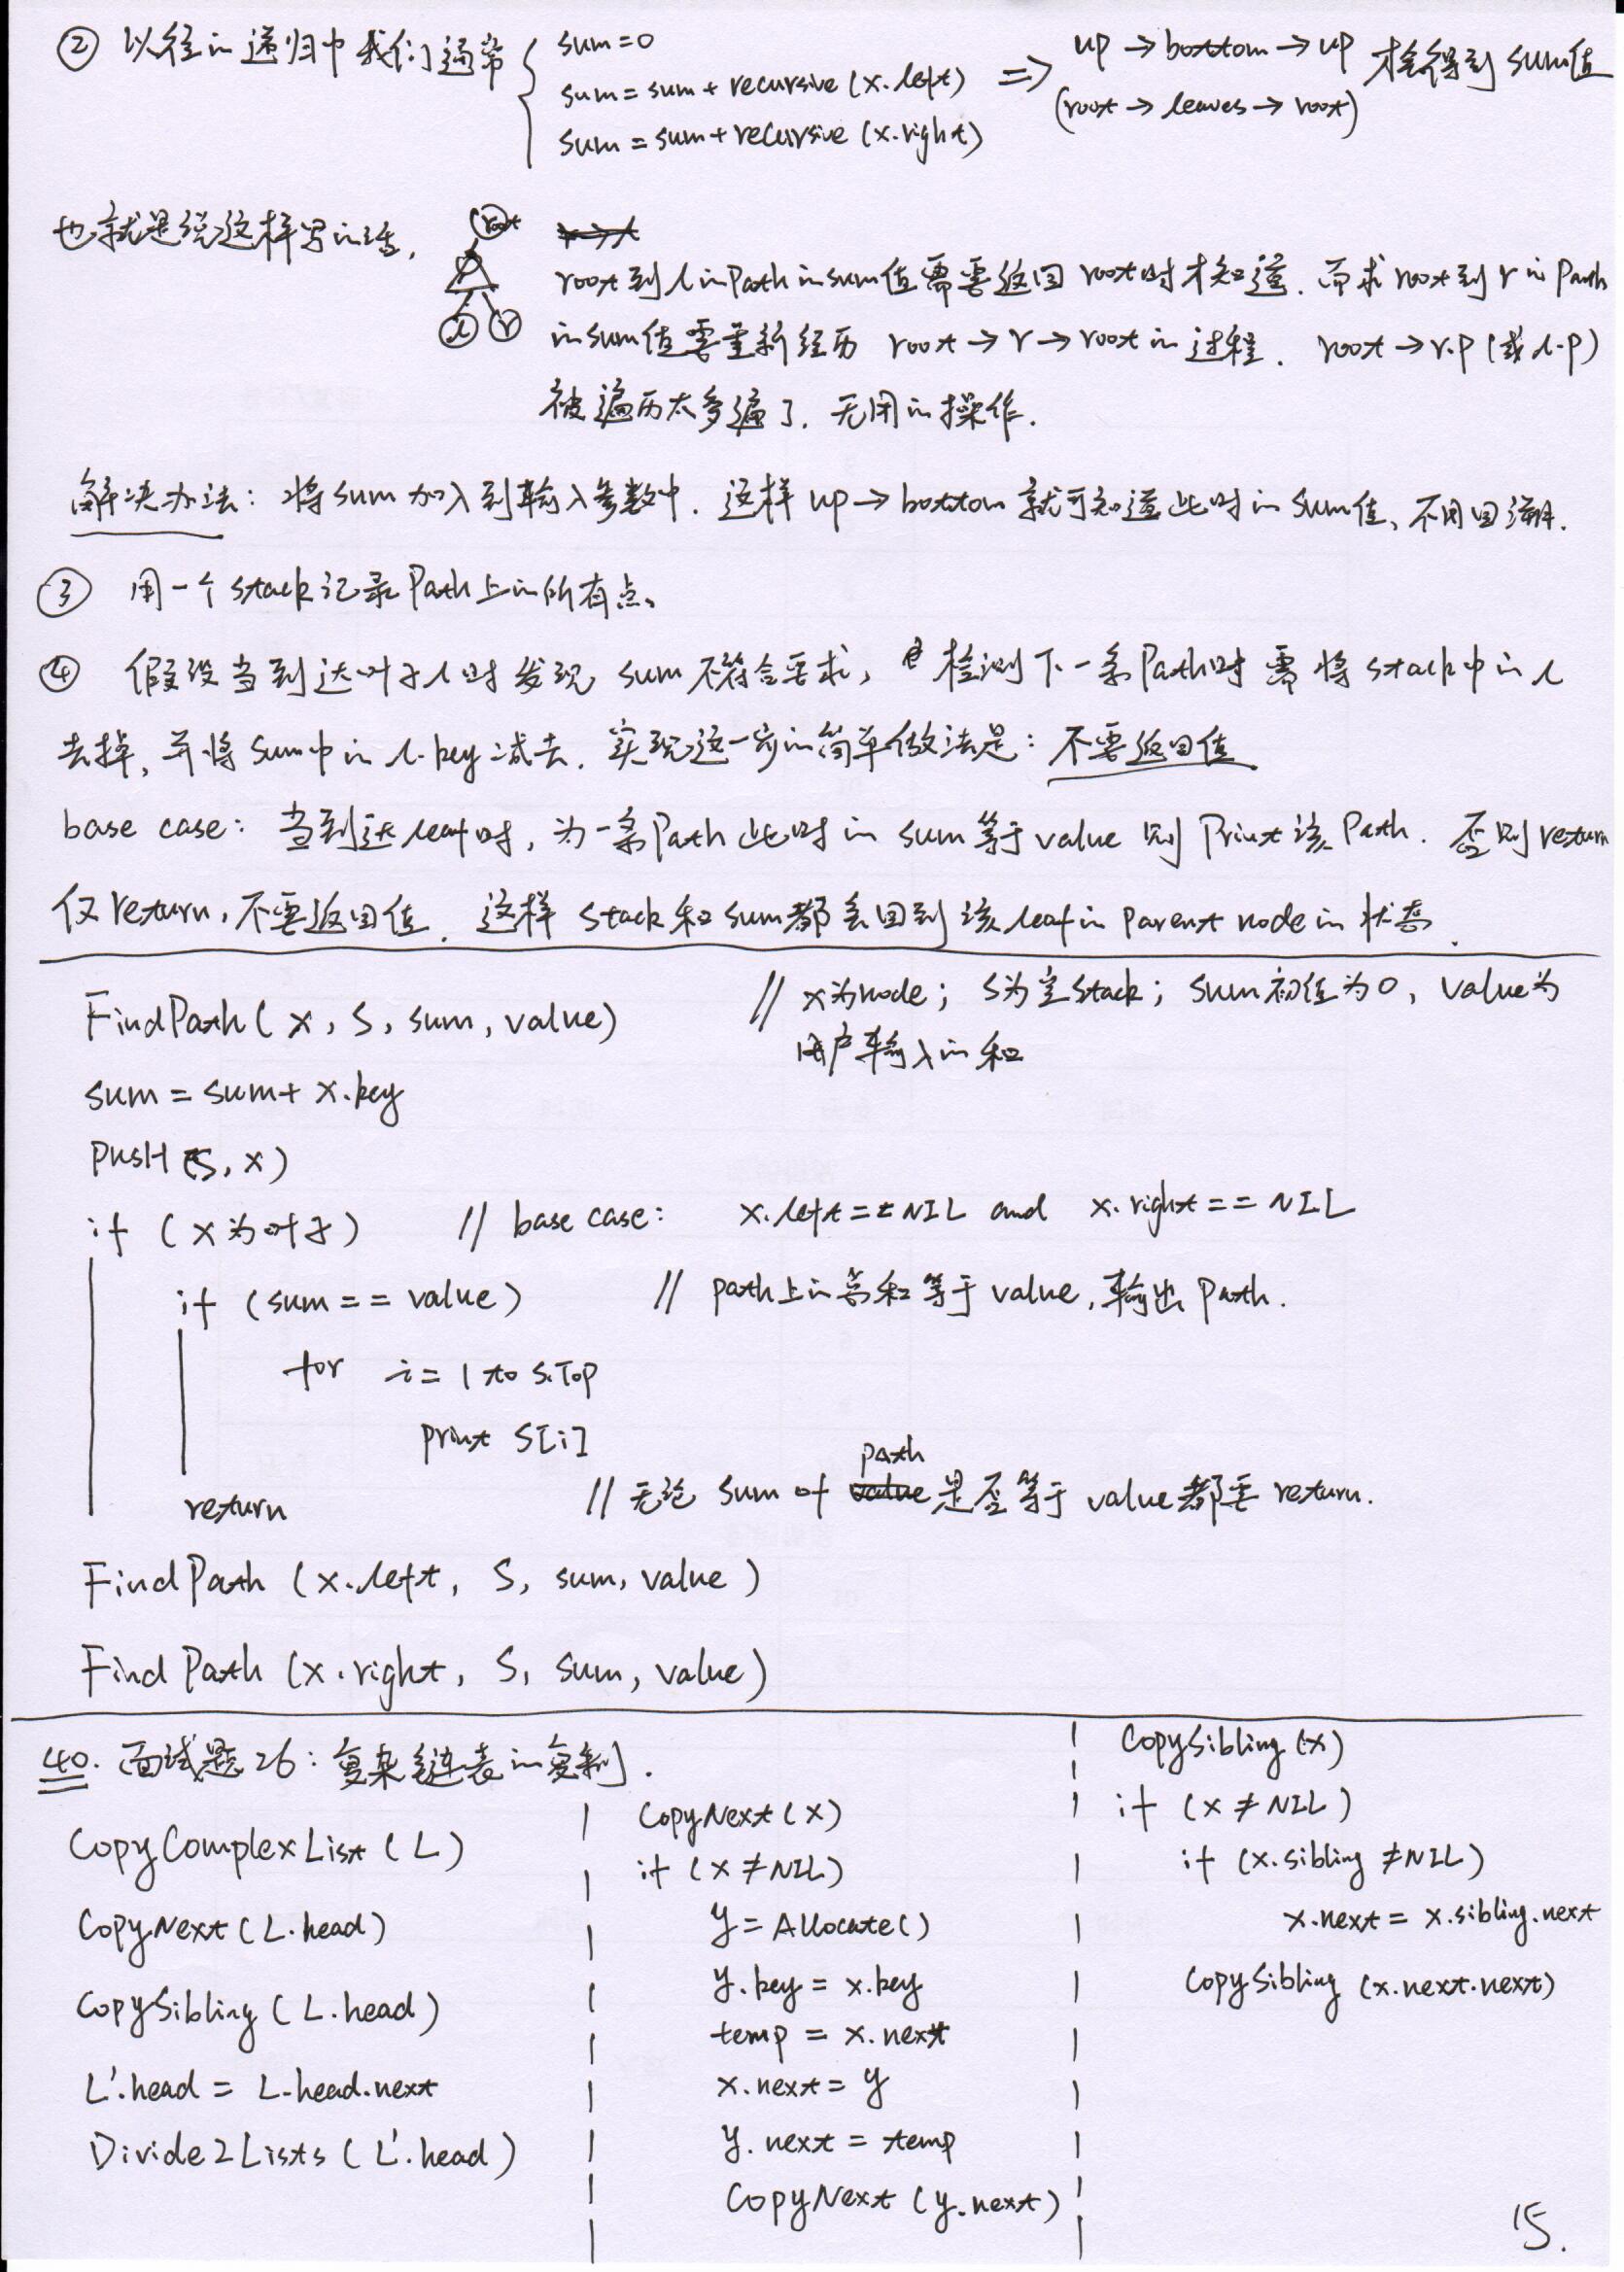 ② 以往的递归中我们通常 { sum=0
sum=sum+recursive(x.left)
sum=sum+recursive(x.right)
=> up→bottom→up 才会得到sum值
(root→leaves→root)
也就是说这样写的话,
root
l r
root到l的Path的sum值需要返回root时才知道. 而求root到r的Path
的sum值要重新经历 root→r→root的过程. root→r.p(或l.p)
被遍历太多遍了. 无用的操作.
解决办法: 将sum加入到输入参数中. 这样up→bottom就可知道此时的sum值、不用回溯.
③ 用一个stack记录Path上的所有点。
④ 假设当到达叶子l时发现sum不符合要求, 检测下一条Path时需将stack中的l
去掉, 并将sum中的l.key减去. 实现这一步的简单做法是: 不要返回值
base case: 当到达leaf时, 为一条Path此时的sum等于value则Print该Path. 否则return
仅return, 不要返回值. 这样stack和sum都会回到该leaf的parent node的状态.
FindPath(x, S, sum, value) // x为node; S为空stack; sum初值为0, value为
用户输入的和
sum=sum+x.key
PUSH(S, x)
if (x为叶子) // base case: x.left==NIL and x.right==NIL
if (sum==value) // path上的总和等于value, 输出Path.
for i=1 to S.TOP
print S[i]
return // 无论sum of path是否等于value都要return.
FindPath(x.left, S, sum, value)
FindPath(x.right, S, sum, value)
40. 面试题26: 复杂链表的复制.
CopyComplexList(L)
CopyNext(L.head)
CopySibling(L.head)
L'.head = L.head.next
Divide2Lists(L'.head)
CopyNext(x)
if (x≠NIL)
y=Allocate()
y.key=x.key
temp=x.next
x.next=y
y.next=temp
CopyNext(y.next)
CopySibling(x)
if (x≠NIL)
if (x.sibling≠NIL)
x.next=x.sibling.next
CopySibling(x.next.next)
15.